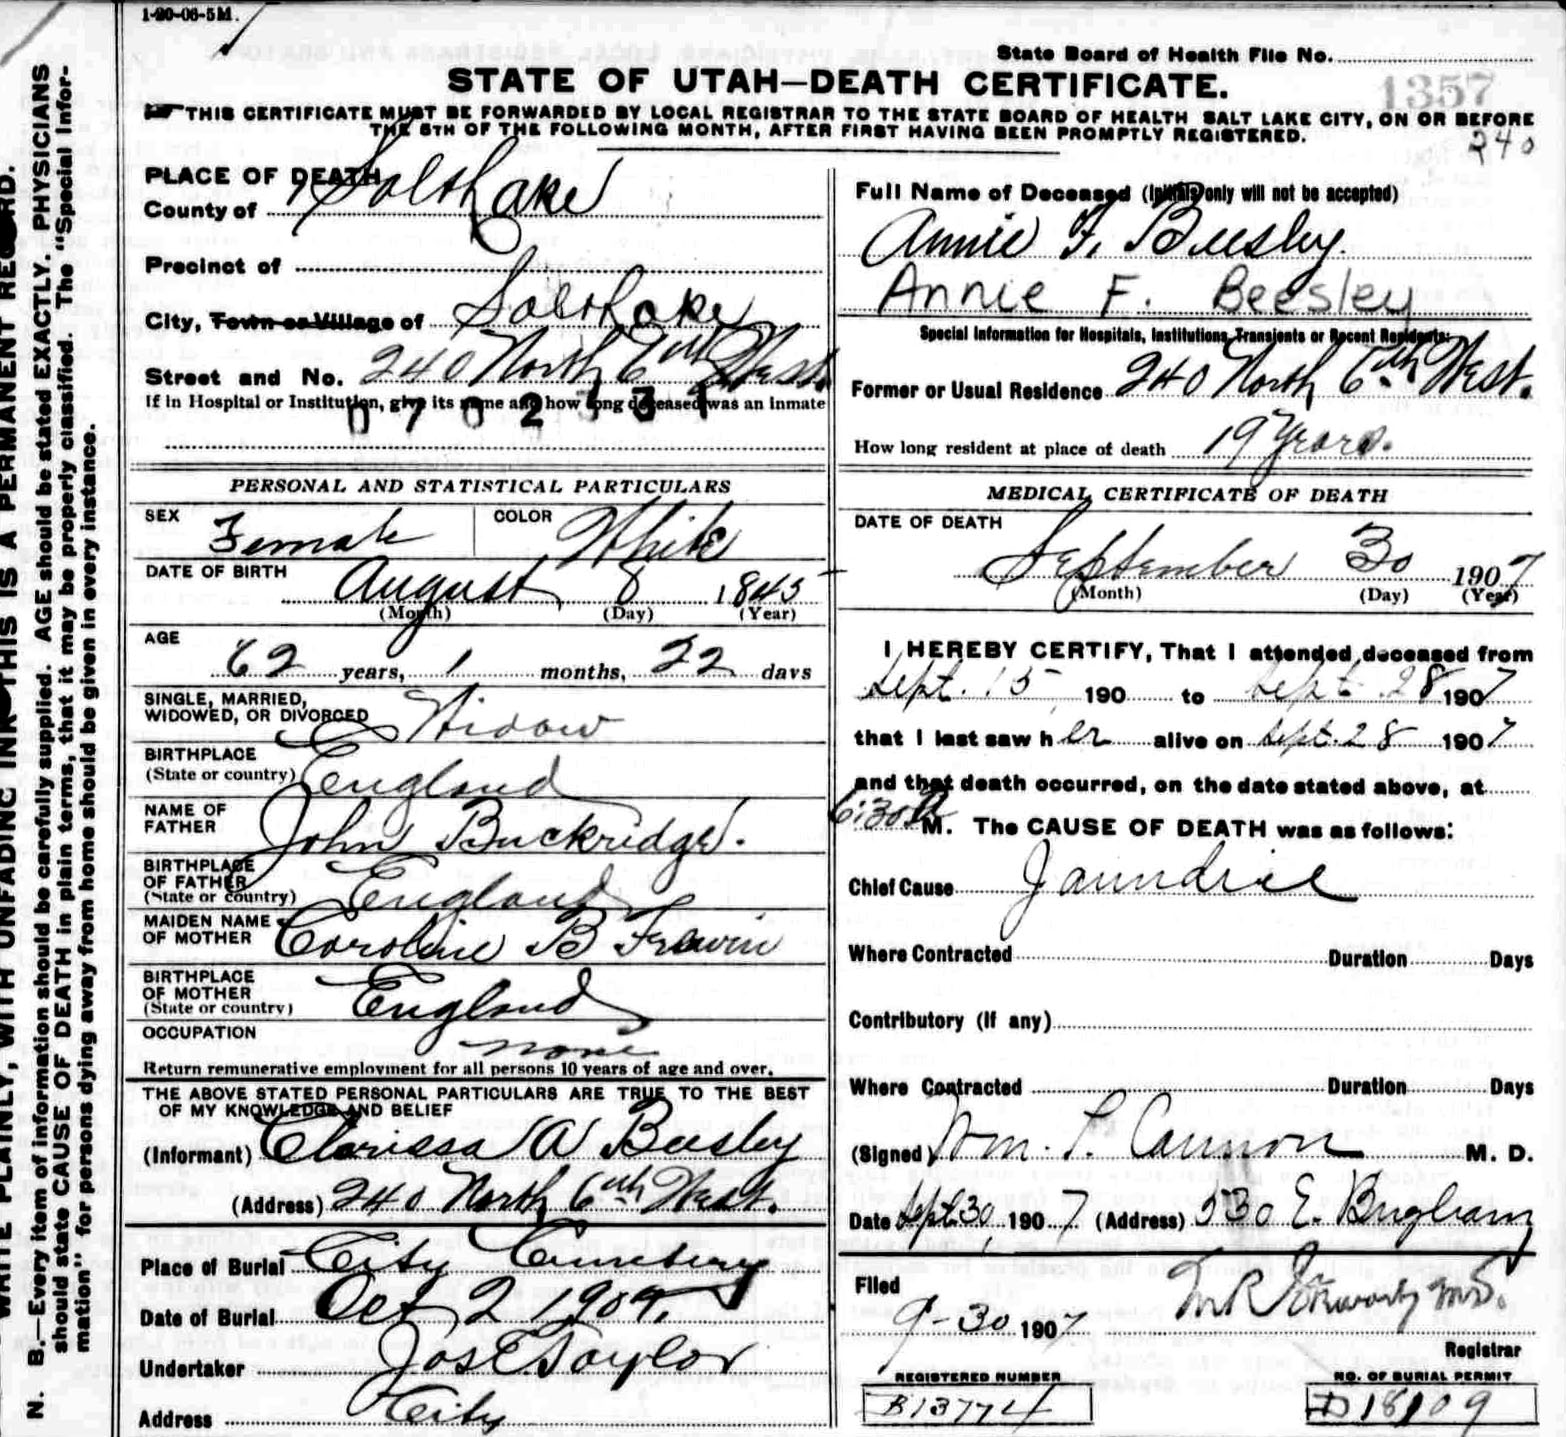 1-20-06-5M.
State Board of Health File No.
1357
STATE OF UTAH—DEATH CERTIFICATE.
THIS CERTIFICATE MUST BE FORWARDED BY LOCAL REGISTRAR TO THE STATE BOARD OF HEALTH SALT LAKE CITY, ON OR BEFORE
THE 5TH OF THE FOLLOWING MONTH, AFTER FIRST HAVING BEEN PROMPTLY REGISTERED.
240
PLACE OF DEATH
County of Salt Lake
Precinct of
City, Town or Village of Salt Lake
Street and No. 240 North 6th West.
If in Hospital or Institution, give its name and how long deceased was an inmate
0702331
Full Name of Deceased (Initials only will not be accepted)
Annie F. Beesley.
Annie F. Beesley
Special Information for Hospitals, Institutions, Transients or Recent Residents:
Former or Usual Residence 240 North 6th West.
How long resident at place of death 19 Years.
PERSONAL AND STATISTICAL PARTICULARS
SEX Female COLOR White
DATE OF BIRTH
August 8 1845
(Month) (Day) (Year)
AGE
62 years, 1 months, 22 days
SINGLE, MARRIED,
WIDOWED, OR DIVORCED Widow
BIRTHPLACE
(State or country) England
NAME OF
FATHER John Buckridge.
BIRTHPLACE
OF FATHER
(State or country) England
MAIDEN NAME
OF MOTHER Caroline B Frewin
BIRTHPLACE
OF MOTHER
(State or country) England
OCCUPATION
none
Return remunerative employment for all persons 10 years of age and over.
THE ABOVE STATED PERSONAL PARTICULARS ARE TRUE TO THE BEST
OF MY KNOWLEDGE AND BELIEF
(Informant) Clarissa A Beesley
(Address) 240 North 6th West.
Place of Burial City Cemetery
Date of Burial Oct 2 1907.
Undertaker Jos E Taylor
Address City
MEDICAL CERTIFICATE OF DEATH
DATE OF DEATH
September 30 1907
(Month) (Day) (Year)
I HEREBY CERTIFY, That I attended deceased from
Sept. 15 190 to Sept. 28 1907
that I last saw her alive on Sept. 28 1907
and that death occurred, on the date stated above, at
6:30 A M. The CAUSE OF DEATH was as follows:
Chief Cause Jaundice
Where Contracted Duration Days
Contributory (If any)
Where Contracted Duration Days
(Signed) Wm. T. Cannon M. D.
Date Sept 30, 1907 (Address) 530 E. Brigham
Filed
9-30 1907
Registrar
REGISTERED NUMBER
B13774
NO. OF BURIAL PERMIT
D18109
WRITE PLAINLY, WITH UNFADING INK—THIS IS A PERMANENT RECORD.
N. B.—Every item of information should be carefully supplied. AGE should be stated EXACTLY. PHYSICIANS
should state CAUSE OF DEATH in plain terms, that it may be properly classified. The "Special Infor-
mation" for persons dying away from home should be given in every instance.